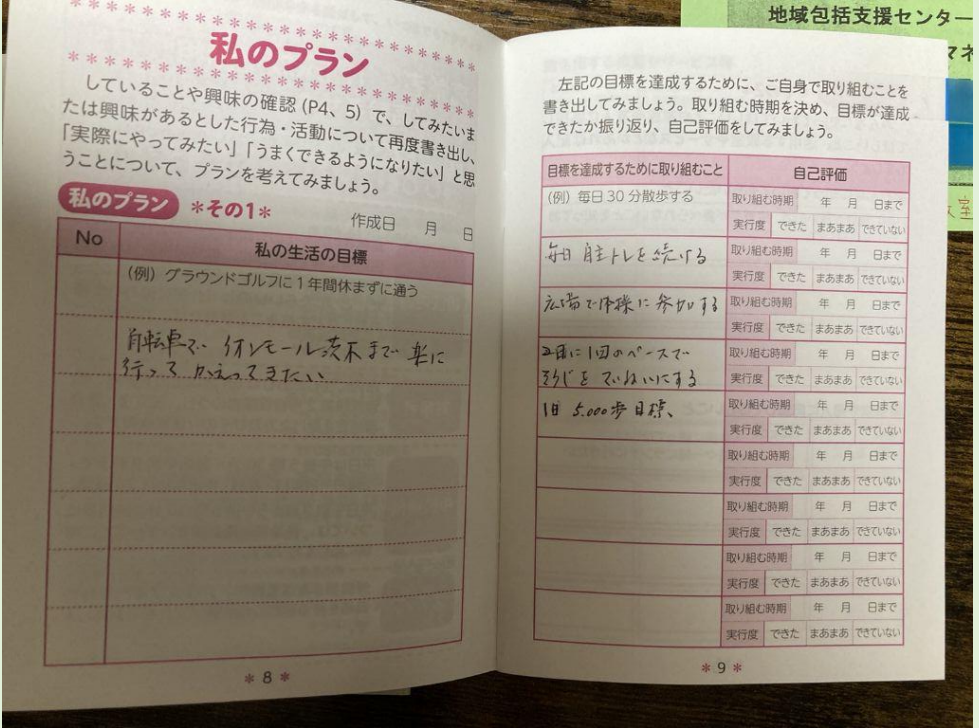 地域包括支援センター
マネ
私のプラン
していることや興味の確認(P4、5)で、してみたいま
たは興味があるとした行為・活動について再度書き出し、
「実際にやってみたい」「うまくできるようになりたい」と思
うことについて、プランを考えてみましょう。
私のプラン *その1*
作成日 月 日
No 私の生活の目標
(例)グラウンドゴルフに1年間休まずに通う
自転車で イオンモール茨木まで 楽に
行って かえってきたい
* 8 *
左記の目標を達成するために、ご自身で取り組むことを
書き出してみましょう。取り組む時期を決め、目標が達成
できたか振り返り、自己評価をしてみましょう。
目標を達成するために取り組むこと 自己評価
(例)毎日30分散歩する 取り組む時期 年 月 日まで
実行度 できた まあまあ できていない
毎日 自主トレを続ける 取り組む時期 年 月 日まで
実行度 できた まあまあ できていない
広場で体操に参加する 取り組む時期 年 月 日まで
実行度 できた まあまあ できていない
2日に1回のペースで 取り組む時期 年 月 日まで
そうじを ていねいにする 実行度 できた まあまあ できていない
1日 5,000歩 目標、 取り組む時期 年 月 日まで
実行度 できた まあまあ できていない
取り組む時期 年 月 日まで
実行度 できた まあまあ できていない
取り組む時期 年 月 日まで
実行度 できた まあまあ できていない
取り組む時期 年 月 日まで
実行度 できた まあまあ できていない
取り組む時期 年 月 日まで
実行度 できた まあまあ できていない
* 9 *